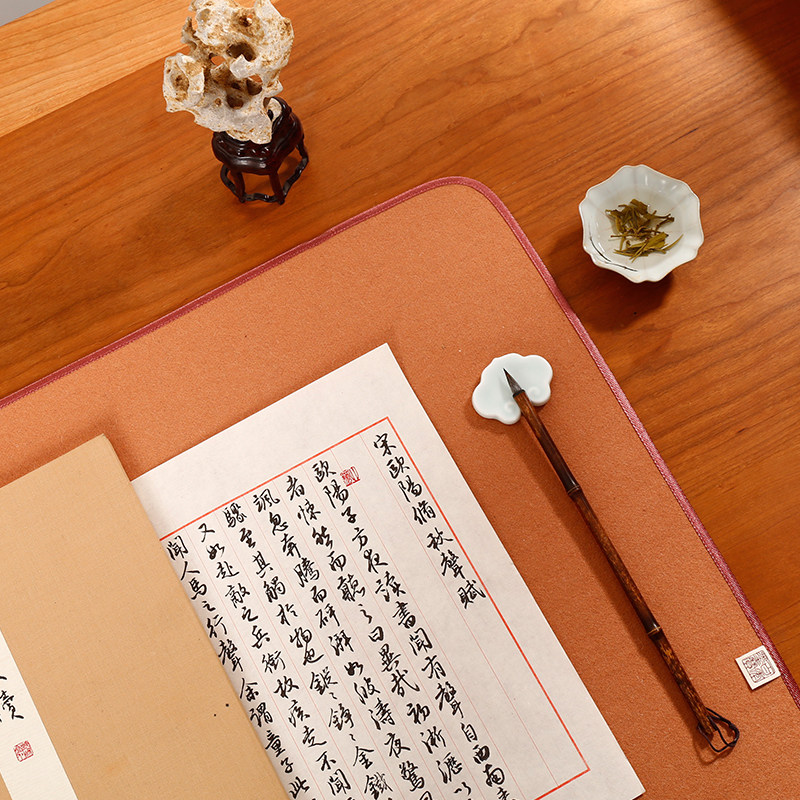 宋歐陽脩秋聲賦
歐陽子方夜讀書聞有聲自西南
者悚然而聽之曰異哉初淅瀝以
颯忽奔騰而砰湃如波濤夜驚
驟至其觸於物也鏦〻錚〻金鐵
又如赴敵之兵銜枚疾走不聞
聞人馬之行聲余謂童子此